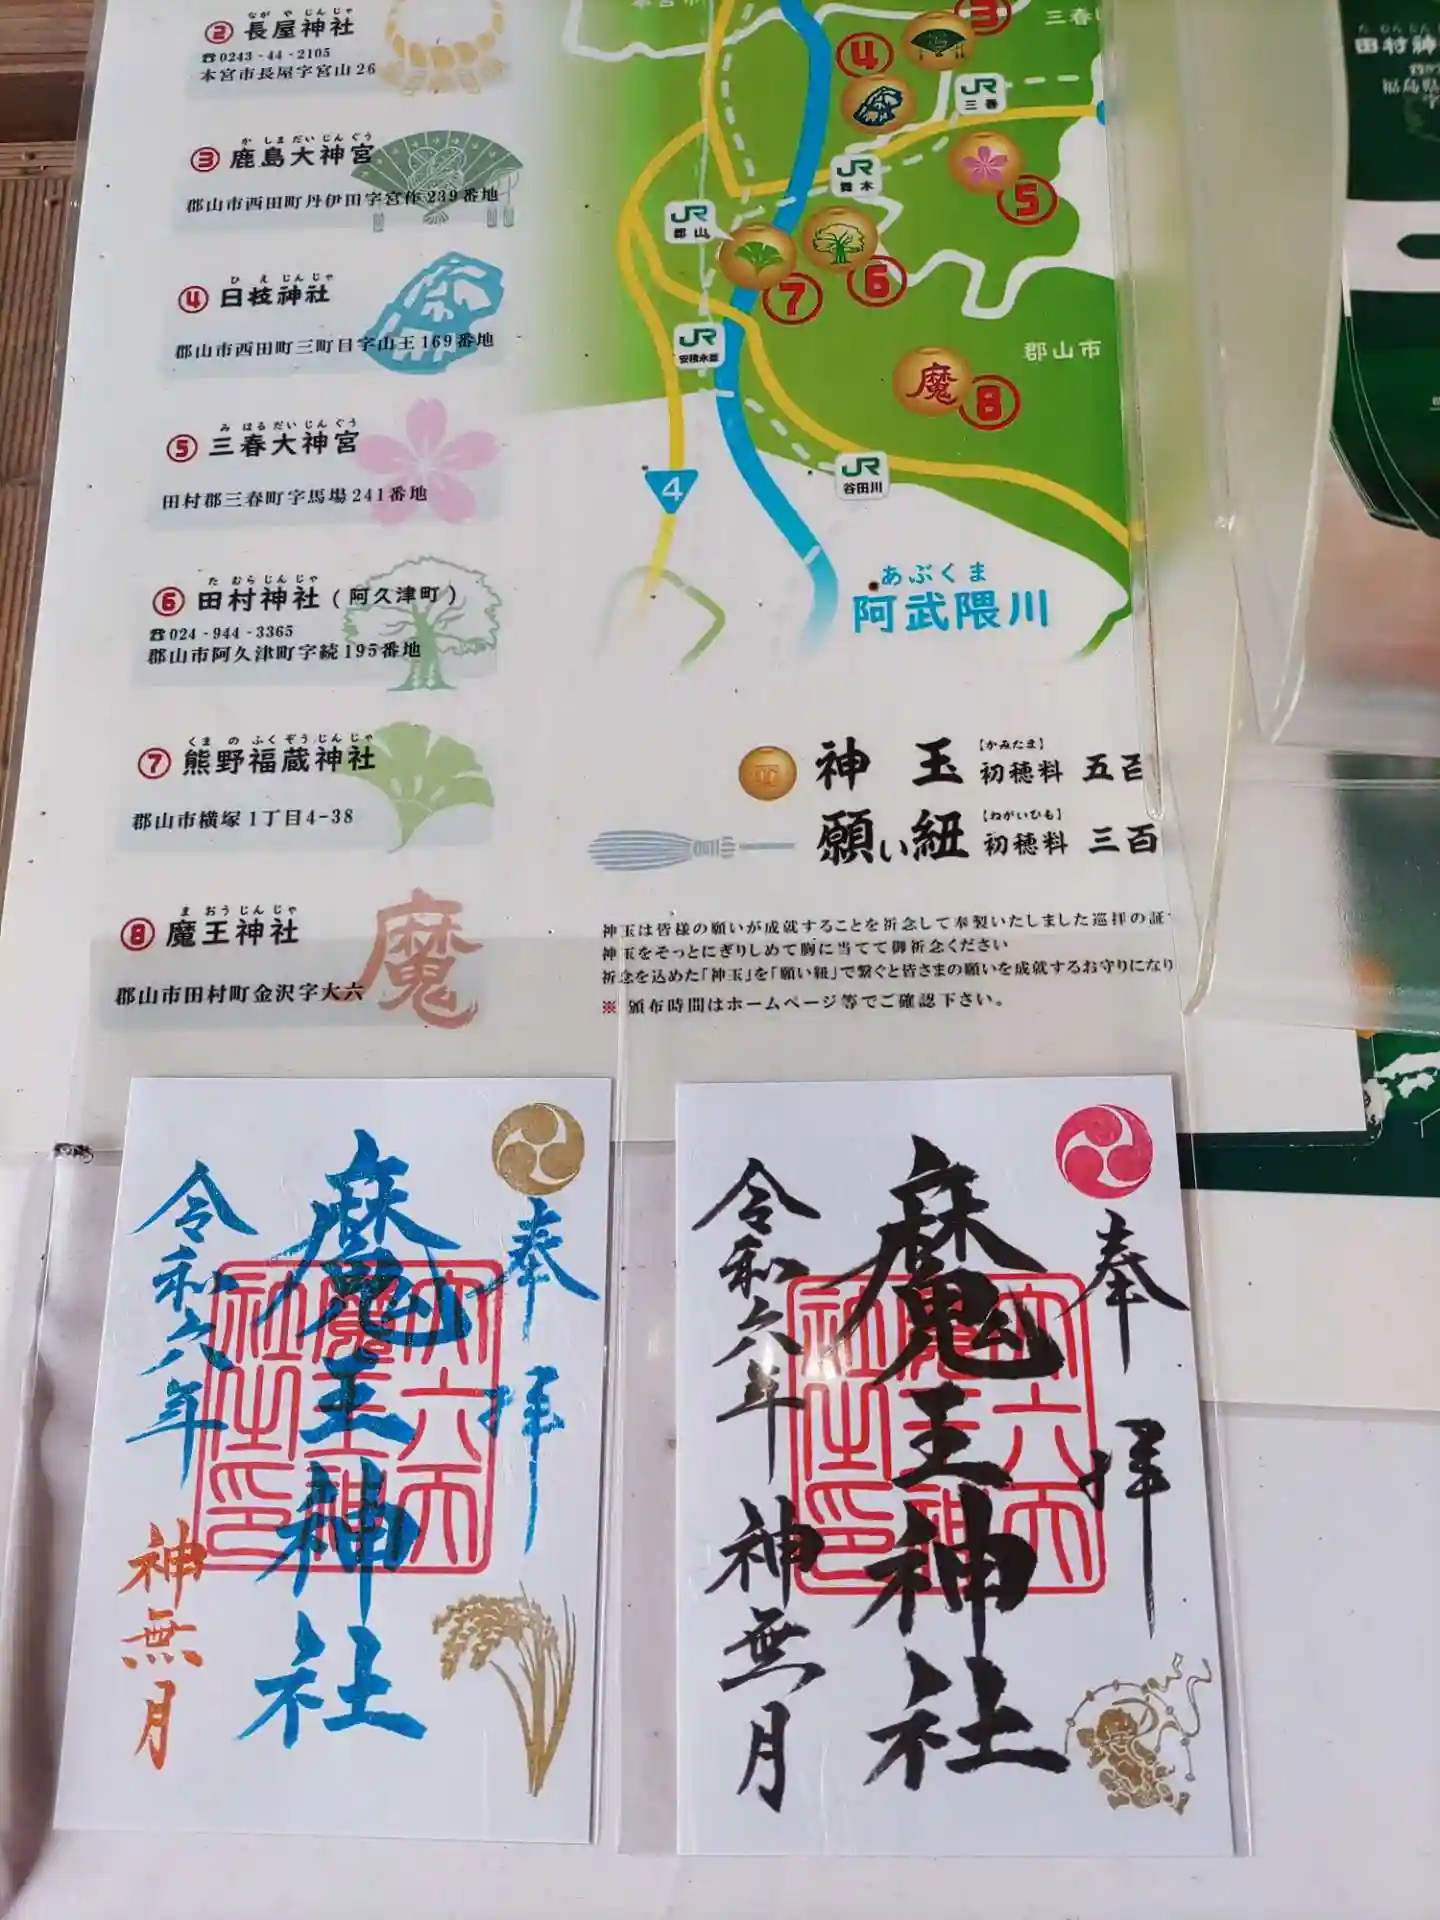 ながやじんじゃ
② 長屋神社
☎0243-44-2105
本宮市長屋字宮山26
かしまだいじんぐう
③ 鹿島大神宮
郡山市西田町丹伊田字宮作239番地
ひえじんじゃ
④ 日枝神社
郡山市西田町三町目字山王169番地
みはるだいじんぐう
⑤ 三春大神宮
田村郡三春町字馬場241番地
たむらじんじゃ
⑥ 田村神社(阿久津町)
☎024-944-3365
郡山市阿久津町字続195番地
くまのふくぞうじんじゃ
⑦ 熊野福蔵神社
郡山市横塚1丁目4-38
まおうじんじゃ
⑧ 魔王神社
郡山市田村町金沢字大六
魔
本宮市
③
三春
④
JR
三春
JR
舞木
⑤
JR
郡山
⑦
⑥
JR
安積永盛
郡山市
魔
⑧
4
JR
谷田川
あぶくま
阿武隈川
神玉 【かみたま】 初穂料 五百
願い紐 【ねがいひも】 初穂料 三百
神玉は皆様の願いが成就することを祈念して奉製いたしました巡拝の証
神玉をそっとにぎりしめて胸に当てて御祈念ください
祈念を込めた「神玉」を「願い紐」で繋ぐと皆さまの願いを成就するお守りになり
※ 頒布時間はホームページ等でご確認下さい。
奉拝
魔王神社
令和六年
神無月
奉拝
魔王神社
令和六年
神無月